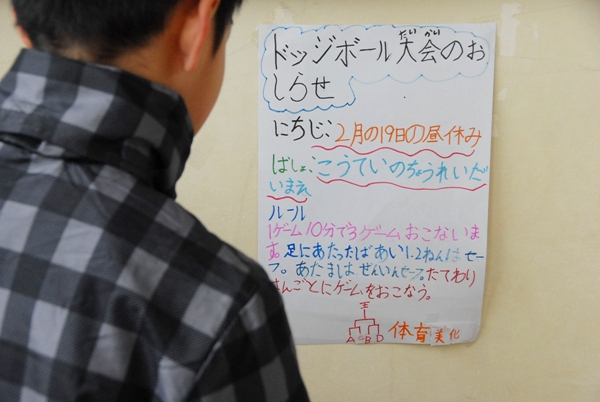 ドッジボール大会のお
たいかい
しらせ
にちじ:2月の19日の昼休み
ばしょ:こうていのちょうれいだ
いまえ
ルール
1ゲーム10分で3ゲームおこないま
す。足にあたったばあい1.2ねんはセー
フ。あたまはぜんいんセーフ。たてわり
はんごとにゲームをおこなう。
王
A C B D 体育美化